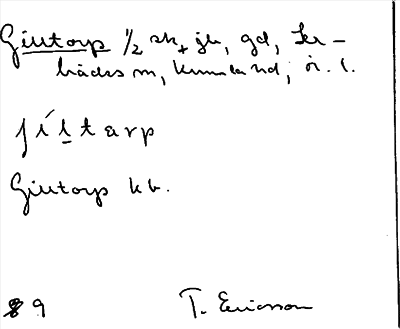 Giutorp ½ sk + ju, gd, Ler-
bäcks sn, Kumla hd, ör. l.
jíltarp
Giutorp kb.
9
T. Ericsson